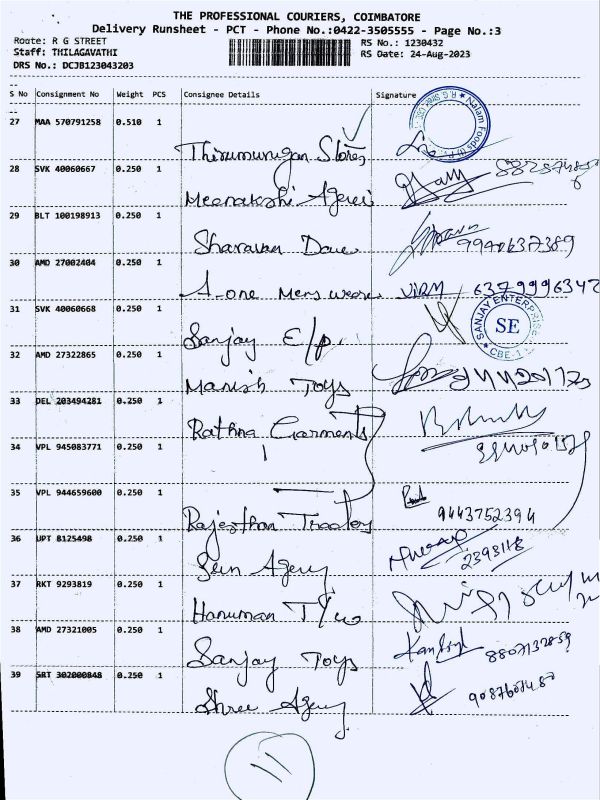 THE PROFESSIONAL COURIERS, COIMBATORE
Delivery Runsheet - PCT - Phone No.:0422-3505555 - Page No.:3
Route: R G STREET RS No.: 1230432
Staff: THILAGAVATHI RS Date: 24-Aug-2023
DRS No.: DCJB123043203
S No Consignment No Weight PCS Consignee Details Signature
27 MAA 570791258 0.510 1
Thirumurugan Stores
28 SVK 40060667 0.250 1
Meenakshi Agenci
29 BLT 100198913 0.250 1
Sharavan Dave 9940637389
30 AMD 27002404 0.250 1
A-one Mens wear VIRM 6379996342
31 SVK 40060668 0.250 1
SANJAY ENTERPRISE
SE
CBE-1
Sanjay E/p.
32 AMD 27322865 0.250 1
Manish Toys
33 DEL 203494281 0.250 1
Rathna Garments
34 VPL 945083771 0.250 1
35 VPL 944659600 0.250 1
9443752394
Rajesthan
36 UPT 8125498 0.250 1
2398118
Agency
37 RKT 9293819 0.250 1
Hanuman
38 AMD 27321005 0.250 1
Sanjay Toys
39 SRT 302000848 0.250 1
Shree Agency
11